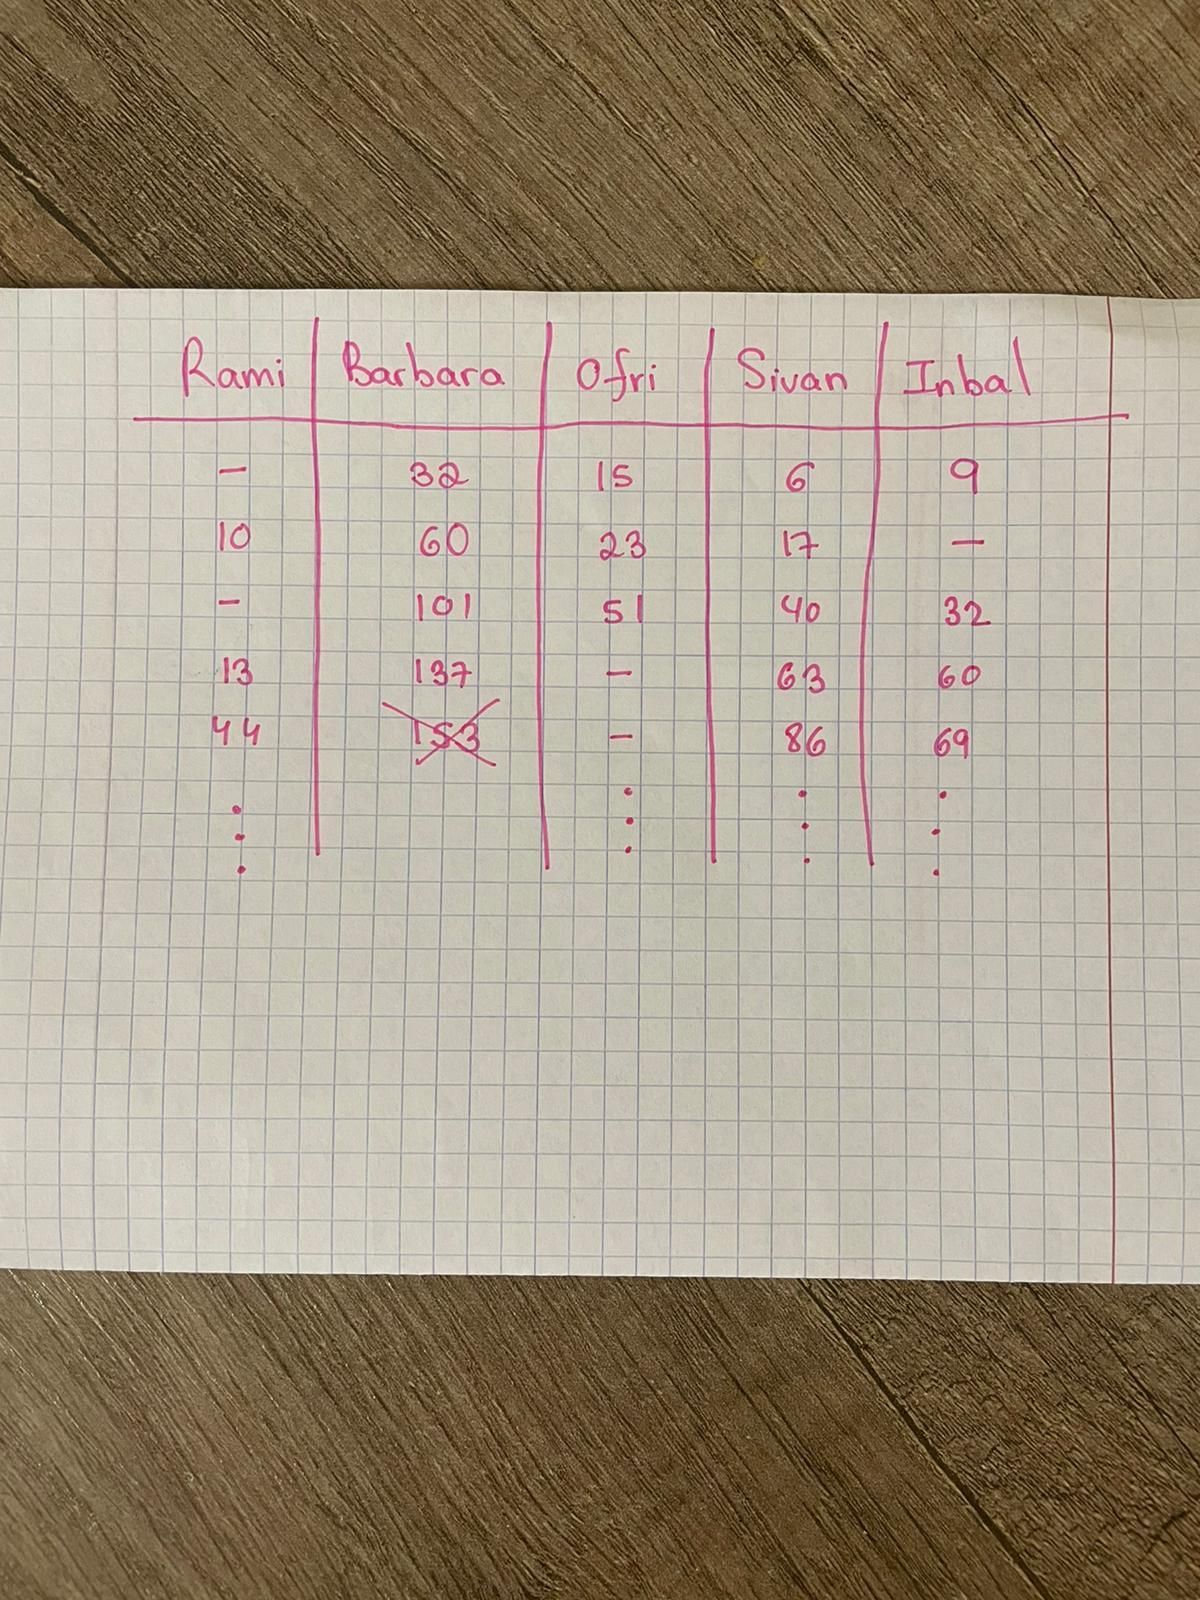 Rami Barbara Ofri Sivan Inbal
- 32 15 6 9
10 60 23 17 -
- 101 51 40 32
13 137 - 63 60
44 153 - 86 69